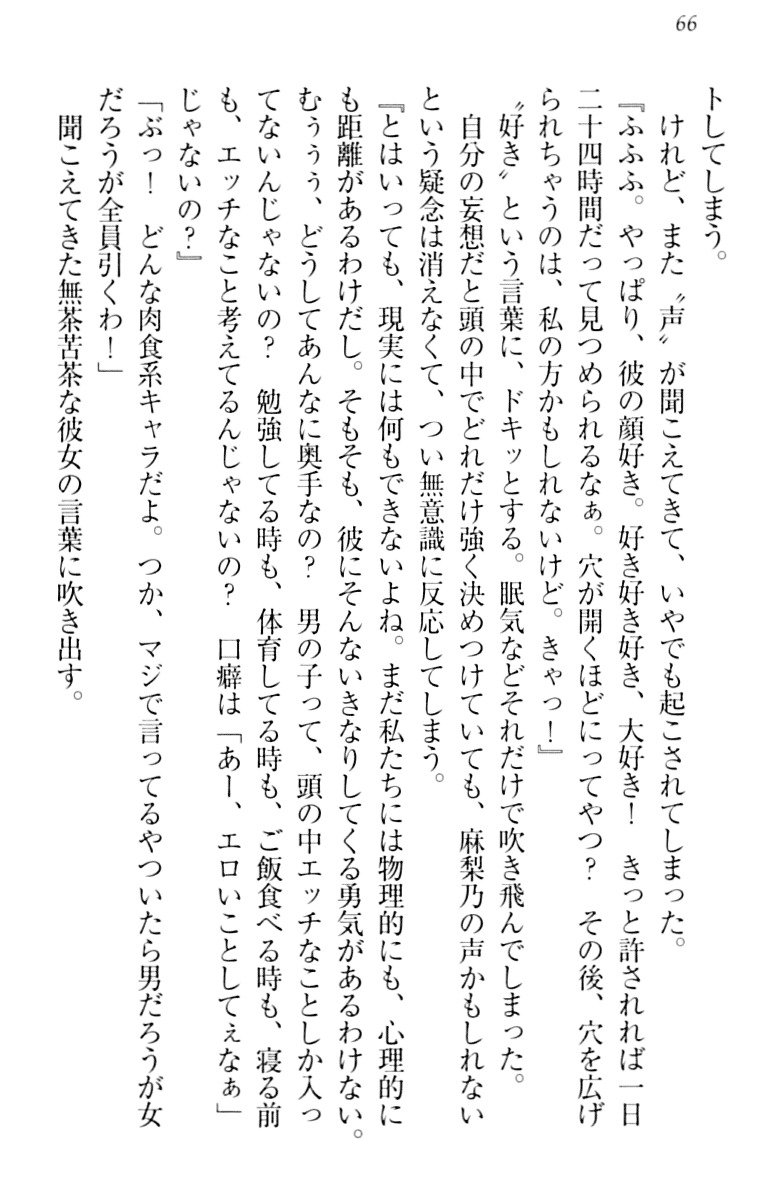 66
トしてしまう。
けれど、また〝声〟が聞こえてきて、いやでも起こされてしまった。
『ふふふ。やっぱり、彼の顔好き。好き好き好き、大好き！　きっと許されれば一日
二十四時間だって見つめられるなぁ。穴が開くほどにってやつ？　その後、穴を広げ
られちゃうのは、私の方かもしれないけど。きゃっ！』
〝好き〟という言葉に、ドキッとする。眠気などそれだけで吹き飛んでしまった。
自分の妄想だと頭の中でどれだけ強く決めつけていても、麻梨乃の声かもしれない
という疑念は消えなくて、つい無意識に反応してしまう。
『とはいっても、現実には何もできないよね。まだ私たちには物理的にも、心理的に
も距離があるわけだし。そもそも、彼にそんないきなりしてくる勇気があるわけない。
むぅぅぅ、どうしてあんなに奥手なの？　男の子って、頭の中エッチなことしか入っ
てないんじゃないの？　勉強してる時も、体育してる時も、ご飯食べる時も、寝る前
も、エッチなこと考えてるんじゃないの？　口癖は「あー、エロいことしてぇなぁ」
じゃないの？』
「ぶっ！　どんな肉食系キャラだよ。つか、マジで言ってるやついたら男だろうが女
だろうが全員引くわ！」
聞こえてきた無茶苦茶な彼女の言葉に吹き出す。